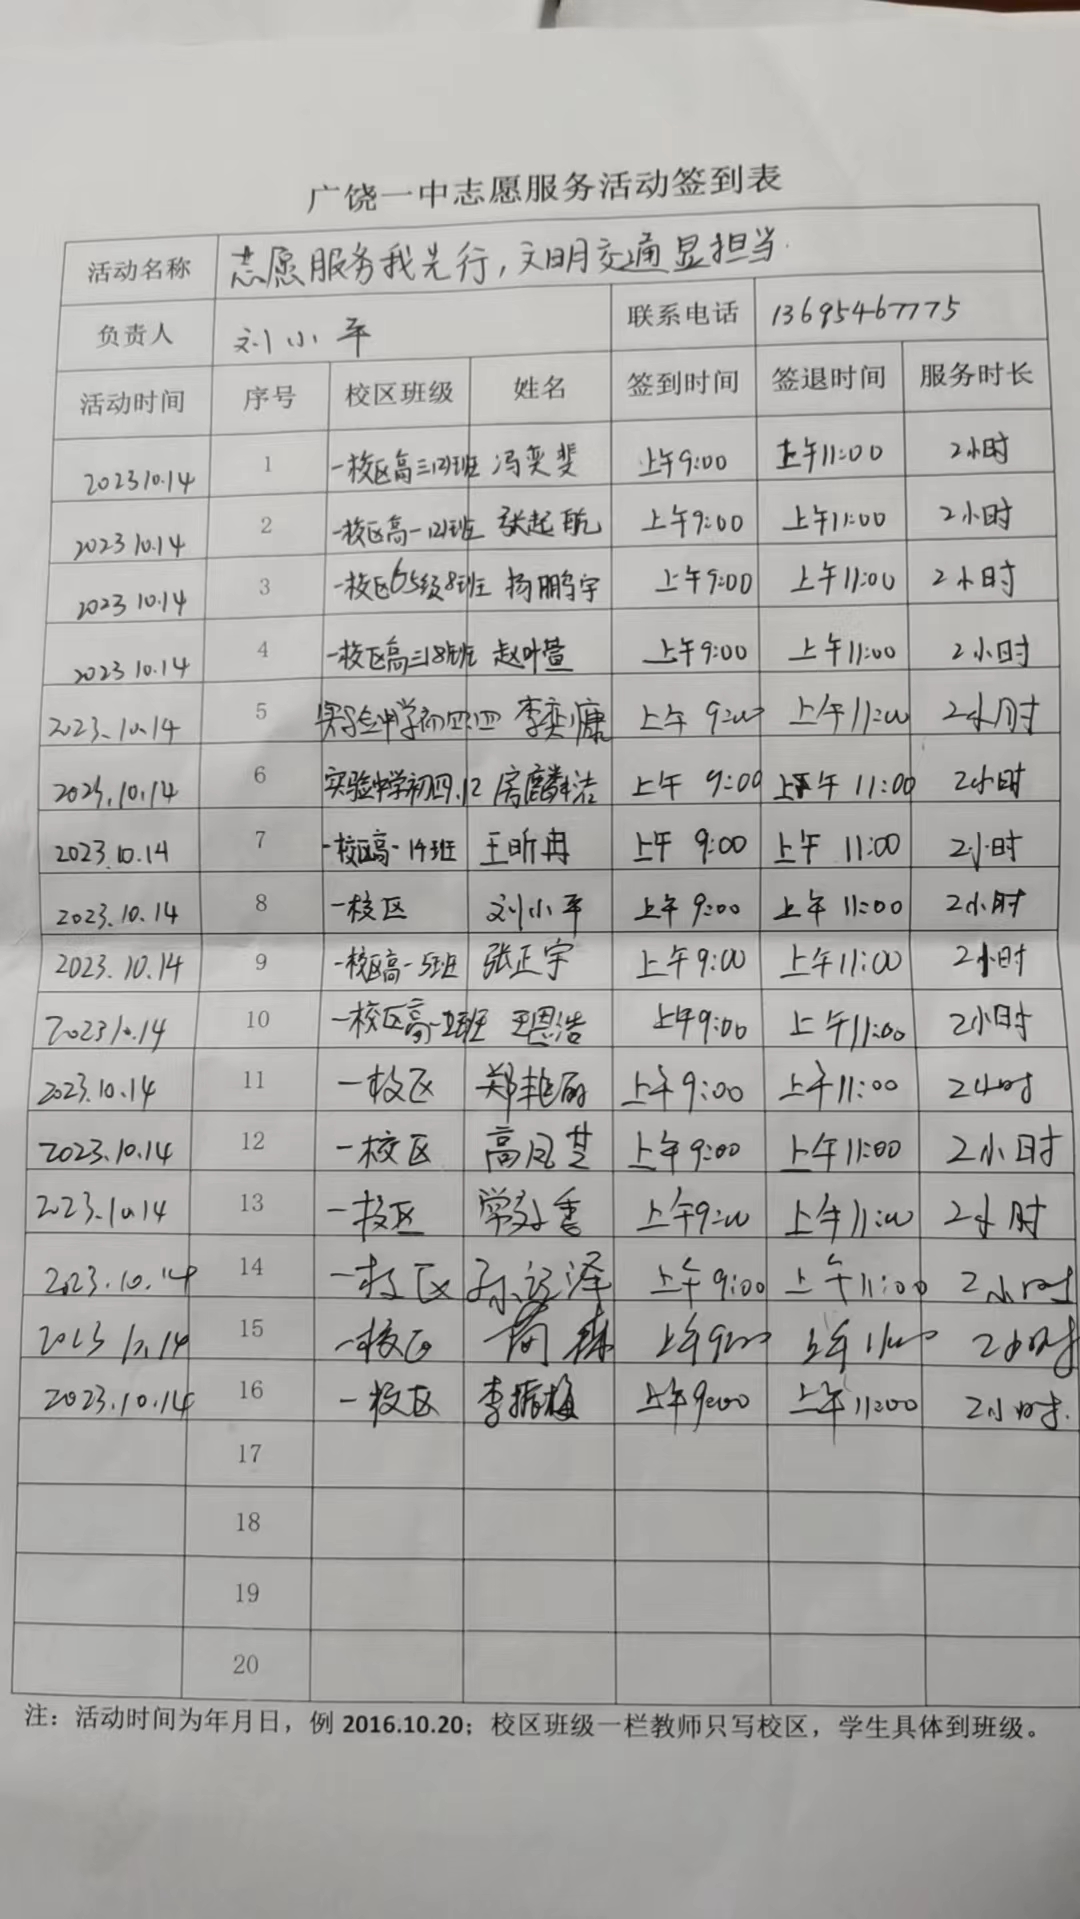 广饶一中志愿服务活动签到表
活动名称 志愿服务我先行,文明交通显担当.
负责人 刘小平 联系电话 13695467775
活动时间 序号 校区班级 姓名 签到时间 签退时间 服务时长
2023 10.14 1 一校区高三 班 冯奕斐 上午9:00 上午11:00 2小时
2023 10.14 2 一校区高一 班 张起航 上午9:00 上午11:00 2小时
2023 10.14 3 一校区65级8班 杨鹏宇 上午9:00 上午11:00 2小时
2023 10.14 4 一校区高三18班 赵叶萱 上午9:00 上午11:00 2小时
2023.10.14 5 实验中学初四.四 李奕慷 上午 9:00 上午11:00 2小时
2023.10.14 6 实验中学初四.12 房麟洁 上午 9:00 上午 11:00 2小时
2023.10.14 7 一校区高一14班 王昕冉 上午 9:00 上午 11:00 2小时
2023.10.14 8 一校区 刘小平 上午 9:00 上午 11:00 2小时
2023.10.14 9 一校区高一5班 张正宇 上午9:00 上午11:00 2小时
2023 10.14 10 一校区高一 班 王恩浩 上午9:00 上午11:00 2小时
2023.10.14 11 一校区 郑艳丽 上午9:00 上午11:00 2小时
2023.10.14 12 一校区 高凤芝 上午9:00 上午11:00 2小时
2023.10.14 13 一校区 上午9:00 上午11:00 2小时
2023.10.14 14 一校区 上午9:00 上午11:00 2小时
2023 10.14 15 一校区 上午9:00 上午11:00 2小时
2023.10.14 16 一校区 李振梅 上午9:00 上午11:00 2小时.
17
18
19
20
注:活动时间为年月日,例 2016.10.20;校区班级一栏教师只写校区,学生具体到班级。